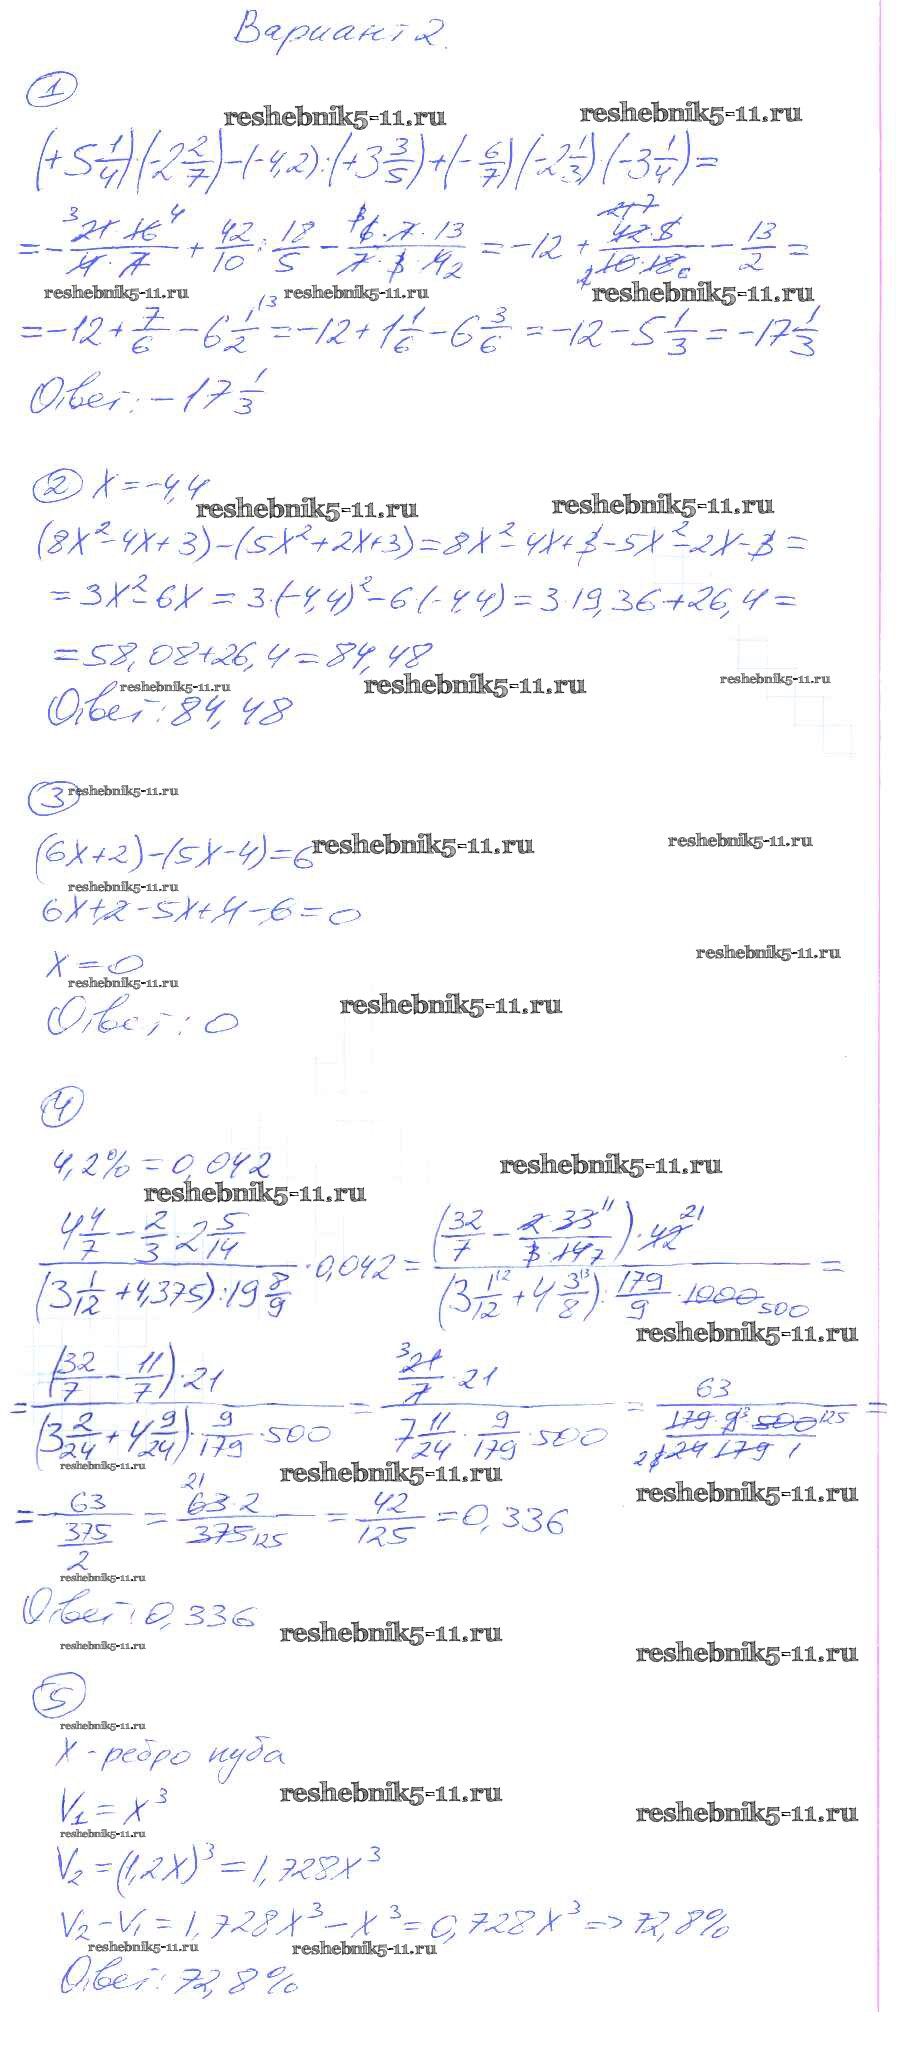 Вариант 2.
1
reshebnik5-11.ru reshebnik5-11.ru
(+5 1/4)·(-2 2/7)-(-4,2):(+3 3/5)+(-6/7)(-2 1/3)(-3 1/4)=
=-21·16/4·7 + 42/10 : 18/5 - 6·7·13/7·3·4 = -12 + 42·5/10·18 - 13/2 =
reshebnik5-11.ru reshebnik5-11.ru reshebnik5-11.ru
=-12+7/6-6 1/2=-12+1 1/6-6 3/6=-12-5 1/3=-17 1/3
Ответ: -17 1/3
2 x=-4,4
reshebnik5-11.ru reshebnik5-11.ru
(8x²-4x+3)-(5x²+2x+3)=8x²-4x+3-5x²-2x-3=
=3x²-6x=3·(-4,4)²-6(-4,4)=3·19,36+26,4=
=58,08+26,4=84,48
reshebnik5-11.ru reshebnik5-11.ru reshebnik5-11.ru
Ответ: 84,48
3 reshebnik5-11.ru
(6x+2)-(5x-4)=6 reshebnik5-11.ru reshebnik5-11.ru
reshebnik5-11.ru
6x+2-5x+4-6=0
x=0 reshebnik5-11.ru
reshebnik5-11.ru
Ответ: 0 reshebnik5-11.ru
4
4,2%=0,042 reshebnik5-11.ru
reshebnik5-11.ru
(4 4/7 - 2/3·2 5/14)/((3 1/12+4,375):19 8/9)·0,042=((32/7 - 2·33/3·14)·42)/((3 1/12+4 3/8):179/9·1000)=
reshebnik5-11.ru
=((32/7-11/7)·21)/((3 2/24+4 9/24)·9/179·500)=(21/7·21)/(7 11/24·9/179·500)=63/(179·9·500/24·179·1)=
reshebnik5-11.ru reshebnik5-11.ru reshebnik5-11.ru
=63/(375/2)=63·2/375=42/125=0,336
reshebnik5-11.ru
Ответ: 0,336 reshebnik5-11.ru
reshebnik5-11.ru reshebnik5-11.ru
5
reshebnik5-11.ru
x - ребро куба
reshebnik5-11.ru
V₁=x³ reshebnik5-11.ru
reshebnik5-11.ru
V₂=(1,2x)³=1,728x³
V₂-V₁=1,728x³-x³=0,728x³=>72,8%
reshebnik5-11.ru reshebnik5-11.ru
Ответ: 72,8%